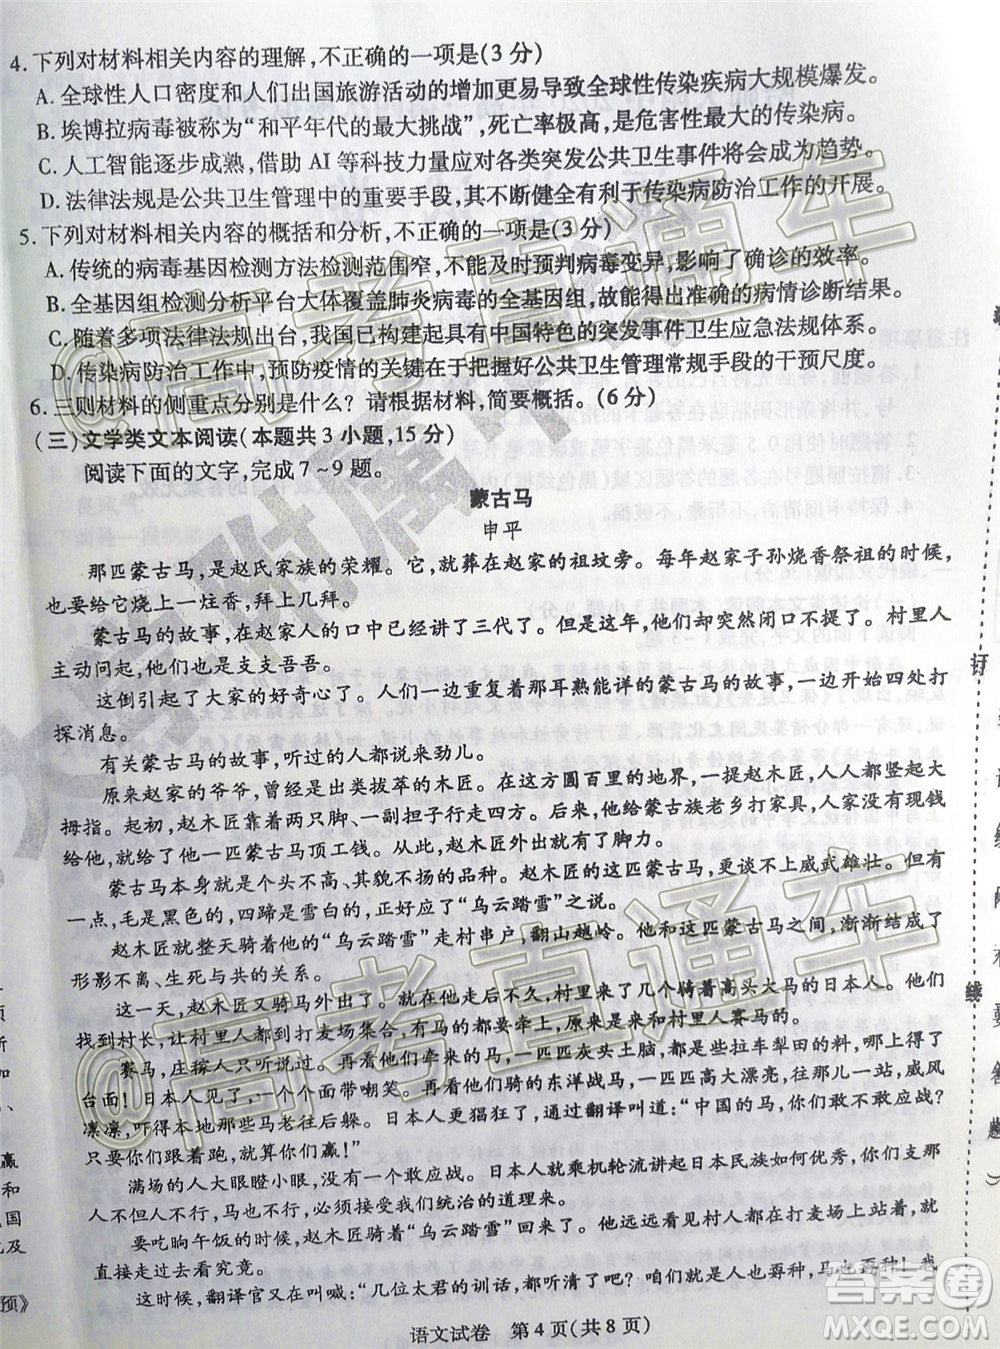 4. 下列对材料相关内容的理解,不正确的一项是(3分)
A. 全球性人口密度和人们出国旅游活动的增加更易导致全球性传染疾病大规模爆发。
B. 埃博拉病毒被称为“和平年代的最大挑战”,死亡率极高,是危害性最大的传染病。
C. 人工智能逐步成熟,借助AI等科技力量应对各类突发公共卫生事件将会成为趋势。
D. 法律法规是公共卫生管理中的重要手段,其不断健全有利于传染病防治工作的开展。
5. 下列对材料相关内容的概括和分析,不正确的一项是(3分)
A. 传统的病毒基因检测方法检测范围窄,无法及时预判病毒变异,影响了确诊的效率。
B. 全基因组检测分析平台大体覆盖肺炎病毒的全基因,故能得出准确的病情诊断结果。
C. 随着多项法律法规出台,我国已构建起具有中国特色的突发公共卫生应急法规体系。
D. 传染病防治工作中,预防疫情的关键在于把握好公共卫生管理常规手段的干预尺度。
6. 三则材料的侧重点分别是什么?请根据材料,简要概括。(6分)
(三)文学类文本阅读(本题共3小题,15分)
阅读下面的文字,完成7~9题。
蒙古马
申平
那匹蒙古马,是赵氏家族的荣耀。它,就葬在赵家的祖坟旁。每年赵家子孙烧香祭祖的时候,
也要给它烧上一炷香,拜上几拜。
蒙古马的故事,在赵家人的口中已经讲了三代了。可是,近来赵家人突然闭口不讲了。村里人
主动问起,他们也是支支吾吾。
这倒引起了大家的好奇心了。人们一边重复着那耳熟能详的蒙古马的故事,一边开始四处打
探消息。
有关蒙古马的故事,听过的人都说来劲儿。
原来赵家的爷爷,曾经是出类拔萃的木匠。在这方圆百里的地界,一提起赵木匠,人人都竖大
拇指。起初,赵木匠靠着两只脚、一副担子行走四方。后来,他去给蒙古族老乡打家具,人家没有现钱
给他,就给了他一匹蒙古马顶工钱。从此,赵木匠如虎添翼,活动范围更大,也更加出名了。
蒙古马本身就是个头不高、其貌不扬的品种。赵木匠的这匹蒙古马,更谈不上威武雄壮。但有
一点,毛是黑色的,四蹄是雪白的,正好应了“乌云踏雪”之说。
赵木匠就整天骑着他的“乌云踏雪”走村串户,翻山越岭。他和这匹蒙古马之间,渐渐结成了
形影不离、生死与共的关系。
这一天,赵木匠又骑马外出了。在他走后不久,村里来了几个骑着高头大马的日本人。他们
找到村长,让村里人都到打麦场集合,有马的都要牵上,原来是日本人要和村里人赛马。
赛马,庄稼人只听说过。看看他们牵来的马,一匹匹灰头土脸,都是些拉车犁田的货,哪上得了
台面!日本人见了,一个个面带嘲笑。再看他们骑的东洋战马,一匹匹高大漂亮,往那里一站,威风
凛凛,吓得本地马直往后躲。日本人更猖狂了,通过翻译叫道:“中国的马,你们敢不敢应战?
只要你们跟着跑,就算你们赢!”
满场的人大眼瞪小眼,没有一个敢应战。日本人就乘机轮流讲起日本民族如何优秀,你们支那
人不但人不行,马也不行,必须接受我们统治的道理来。
要吃晌午饭的时候,赵木匠骑着“乌云踏雪”回来了。他远远看见村人都在打麦场上站着,就
直接走过去看究竟。
这时候,翻译官又在叫喊:“几位太君的训话,都听清了吧?咱们是人也孬种,马也孬种!我
语文试卷 第4页(共8页)
@高考直通车
答案圈
MXQE.COM